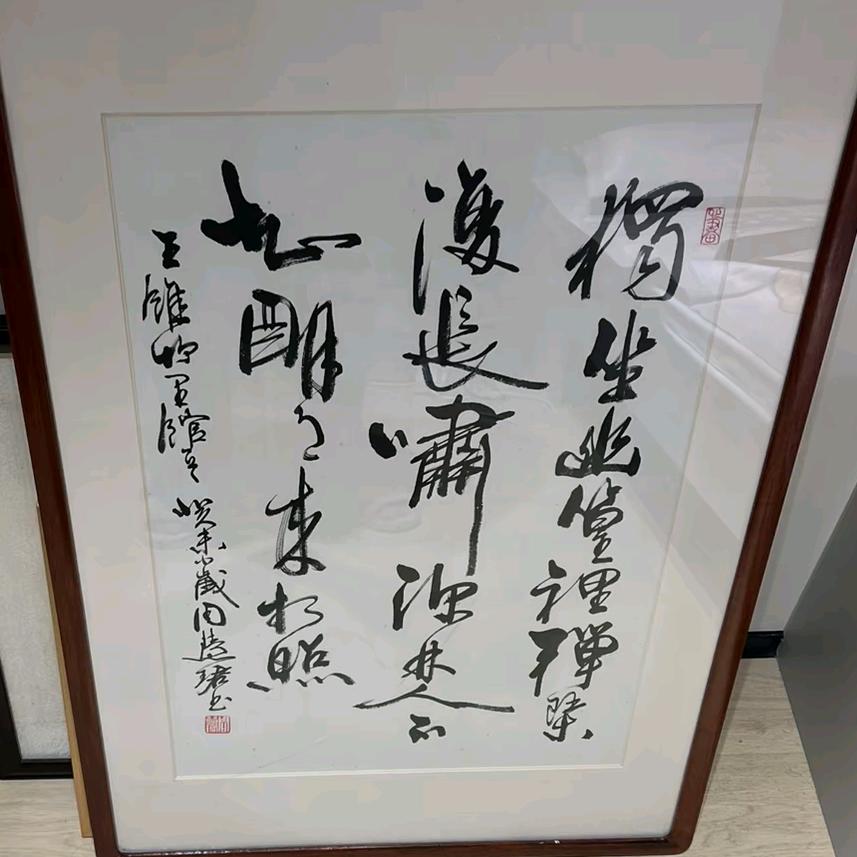 獨坐幽篁裡彈琴
復長嘯深林人不
知明月來相照
王維竹里館 癸未歲周慧珺書